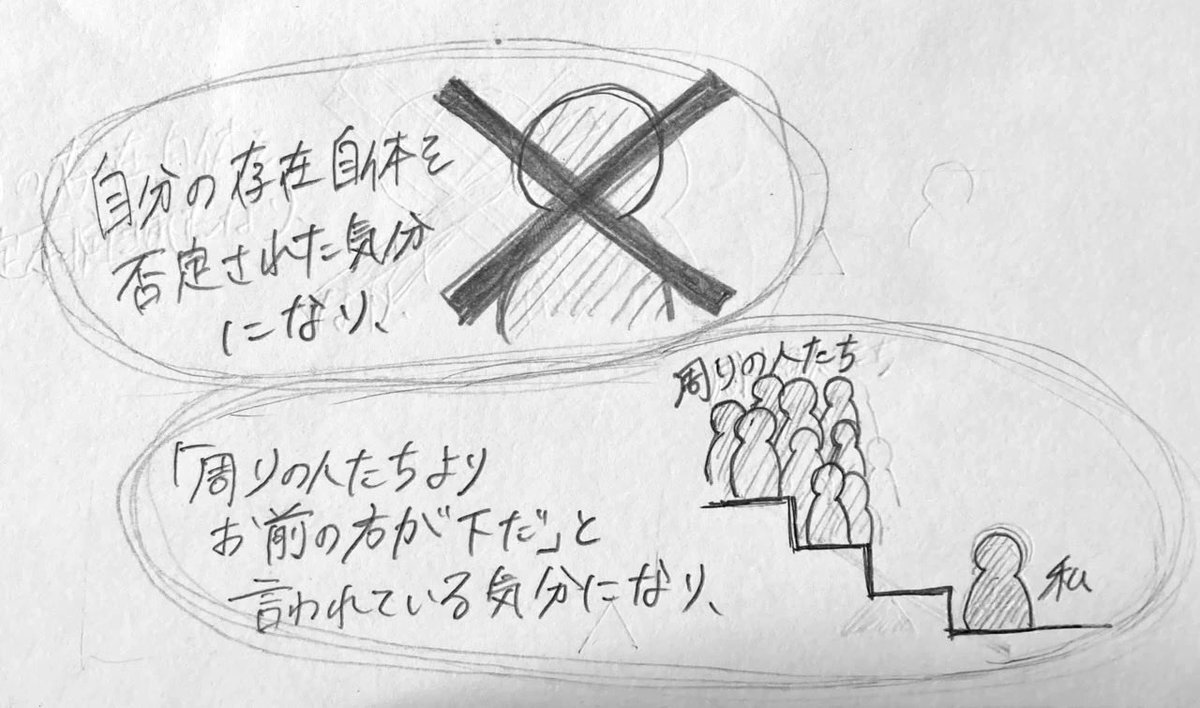 自分の存在自体を
否定された気分
になり、
周りの人たち
「周りの人たちより
お前の方が下だ」と
言われている気分になり、
私